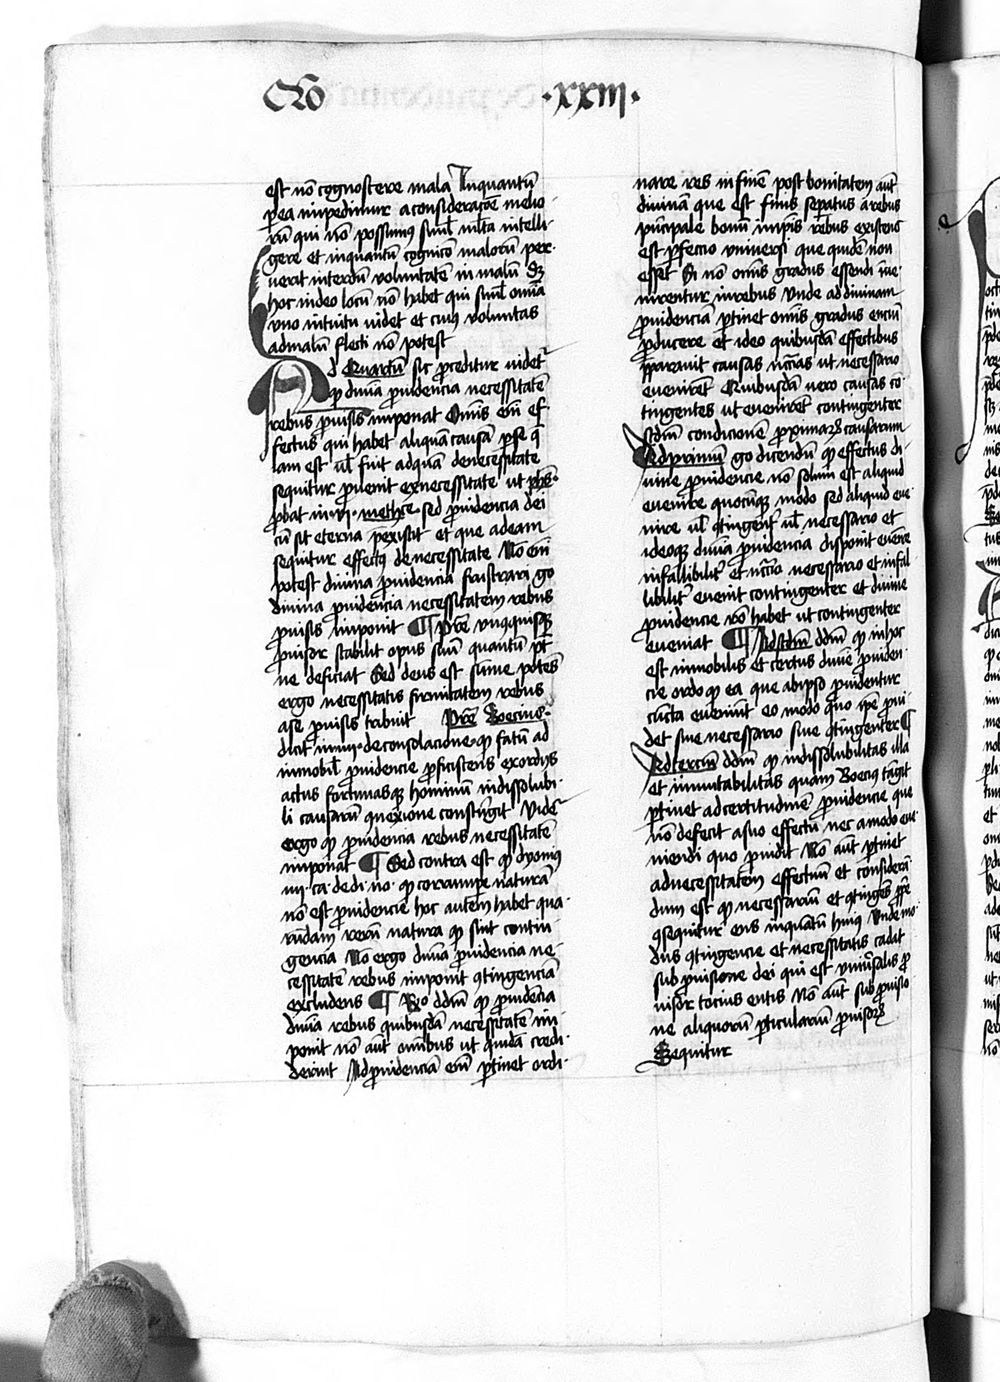 Qo ·xxiii·
est nō cognoscere mala Inquantū
ꝑ ea impedimur a consideracōe melio-
rū qui nō possumus simul multa intelli-
gere et inquantū cognicō malorū per-
uertit interdū voluntatē in malū Sꝫ
hoc in deo locū nō habet qui simul omīa
vno intuitu videt et cuiꝰ voluntas
ad malū flecti nō potest
Ad Quartū sic proceditur videtᷣ
ꝙ diuīa prouidencia necessitatē
rebus prouisis imponat Omīs enī ef-
fectus qui habet aliquā causā per se que
iam est vel fuit ad quā de necessitate
sequitur prouenit ex necessitate ut phūs
probat in vi methᵉᵉ sed prouidencia dei
cū sit eterna preexistit et que ad eam
sequitur effectus de necessitate Nō enī
potest diuina prouidencia frustrari go
diuina prouidencia necessitatem rebus
prouisis imponit ¶ Pretē vnusquisqꝫ
prouisor stabilit opus suū quantū pōt
ne deficiat Sed deus est sūme potēs
ergo necessitatis firmitatem rebus
a se prouisis tribuit Pretē Boecius
dicit in iiii de consolacione ꝙ fatū ab
immobilꝰ prouidencie proficiscens exordijs
actus fortunasqꝫ hominū indissolubi-
li causarū connexione constringit Videtᷣ
ergo ꝙ prouidencia rebus necessitatē
imponat ¶ Sed contra est ꝙ dyonisiꝰ
iiii ca de di no ꝙ corrumpe naturā
nō est prouidencie hoc autem habet qua-
rūdam rerū natura ꝙ sint contin-
gencia Nō ergo diuīa prouidencia ne-
cessitatē rebus imponit contingenciā
excludens ¶ Rᵒ ddm̄ ꝙ prouidēcia
diuīa rebus quibusdā necessitatē im-
ponit nō autē omībus ut quidā credi-
derunt Ad prouidenciā enī ꝑtinet ordi-
nare res in finē post bonitatem autē
diuinā que est finis seꝑatus a rebus
principale bonū in ipīs rebus existens
est ꝑfectio vniuersi que quidē non
esset Si nō omīs gradus essendi inue-
nirentur in rebus Vnde ad diuinam
prouidenciā ꝑtinet omīs gradus enciū
producere et ideo quibusdā effectibus
preparauit causas necārias ut necessario
euenirēt Quibusdā vero causas cō-
tingentes ut euenirēt contingenter
scdm̄ condicionē proximarꝫ causarum
Ad primū go dicendū ꝙ effectus di-
uine prouidencie nō solum est aliquid
euenire quocūqꝫ modo sed aliquid eue-
nire uel contingentᷣ uel necessario et
ideo euenit diuīa prouidencia disponit euenire
infallibilitᷣ et necārio necessario et infal-
libilitᷣ euenit contingenter et diuine
prouidencie rō habet ut contingenter
eueniat ¶ Ad scdm̄ ddm̄ ꝙ in hoc
est immobilis et certus diuīe prouiden-
cie ordo ꝙ ea que ab ipso prouidentur
cūcta eueniūt eo modo quo ipē proui-
det siue necessario siue contingenter ¶
Ad terciū ddm̄ ꝙ indissolubilitas illa
et immutabilitas quam Boeciꝰ tāgit
ꝑtinet ad certitudinē prouidencie que
nō deficit a suo effectu nec a modo eue-
niendi quo prouidit Nō autē ꝑtinet
ad necessitatem effectuū et considerā-
dum est ꝙ necessariū et contingēs proprie
consequitur ens inquantū huiꝰ Vnde mo-
dus contingencie et necessitatis cadit
sub prouisione dei qui est vniuersalis pro-
uisor tocius entis Nō autē sub prouisio-
ne aliquorū ꝑticulariū prouisorꝫ
Sequitur